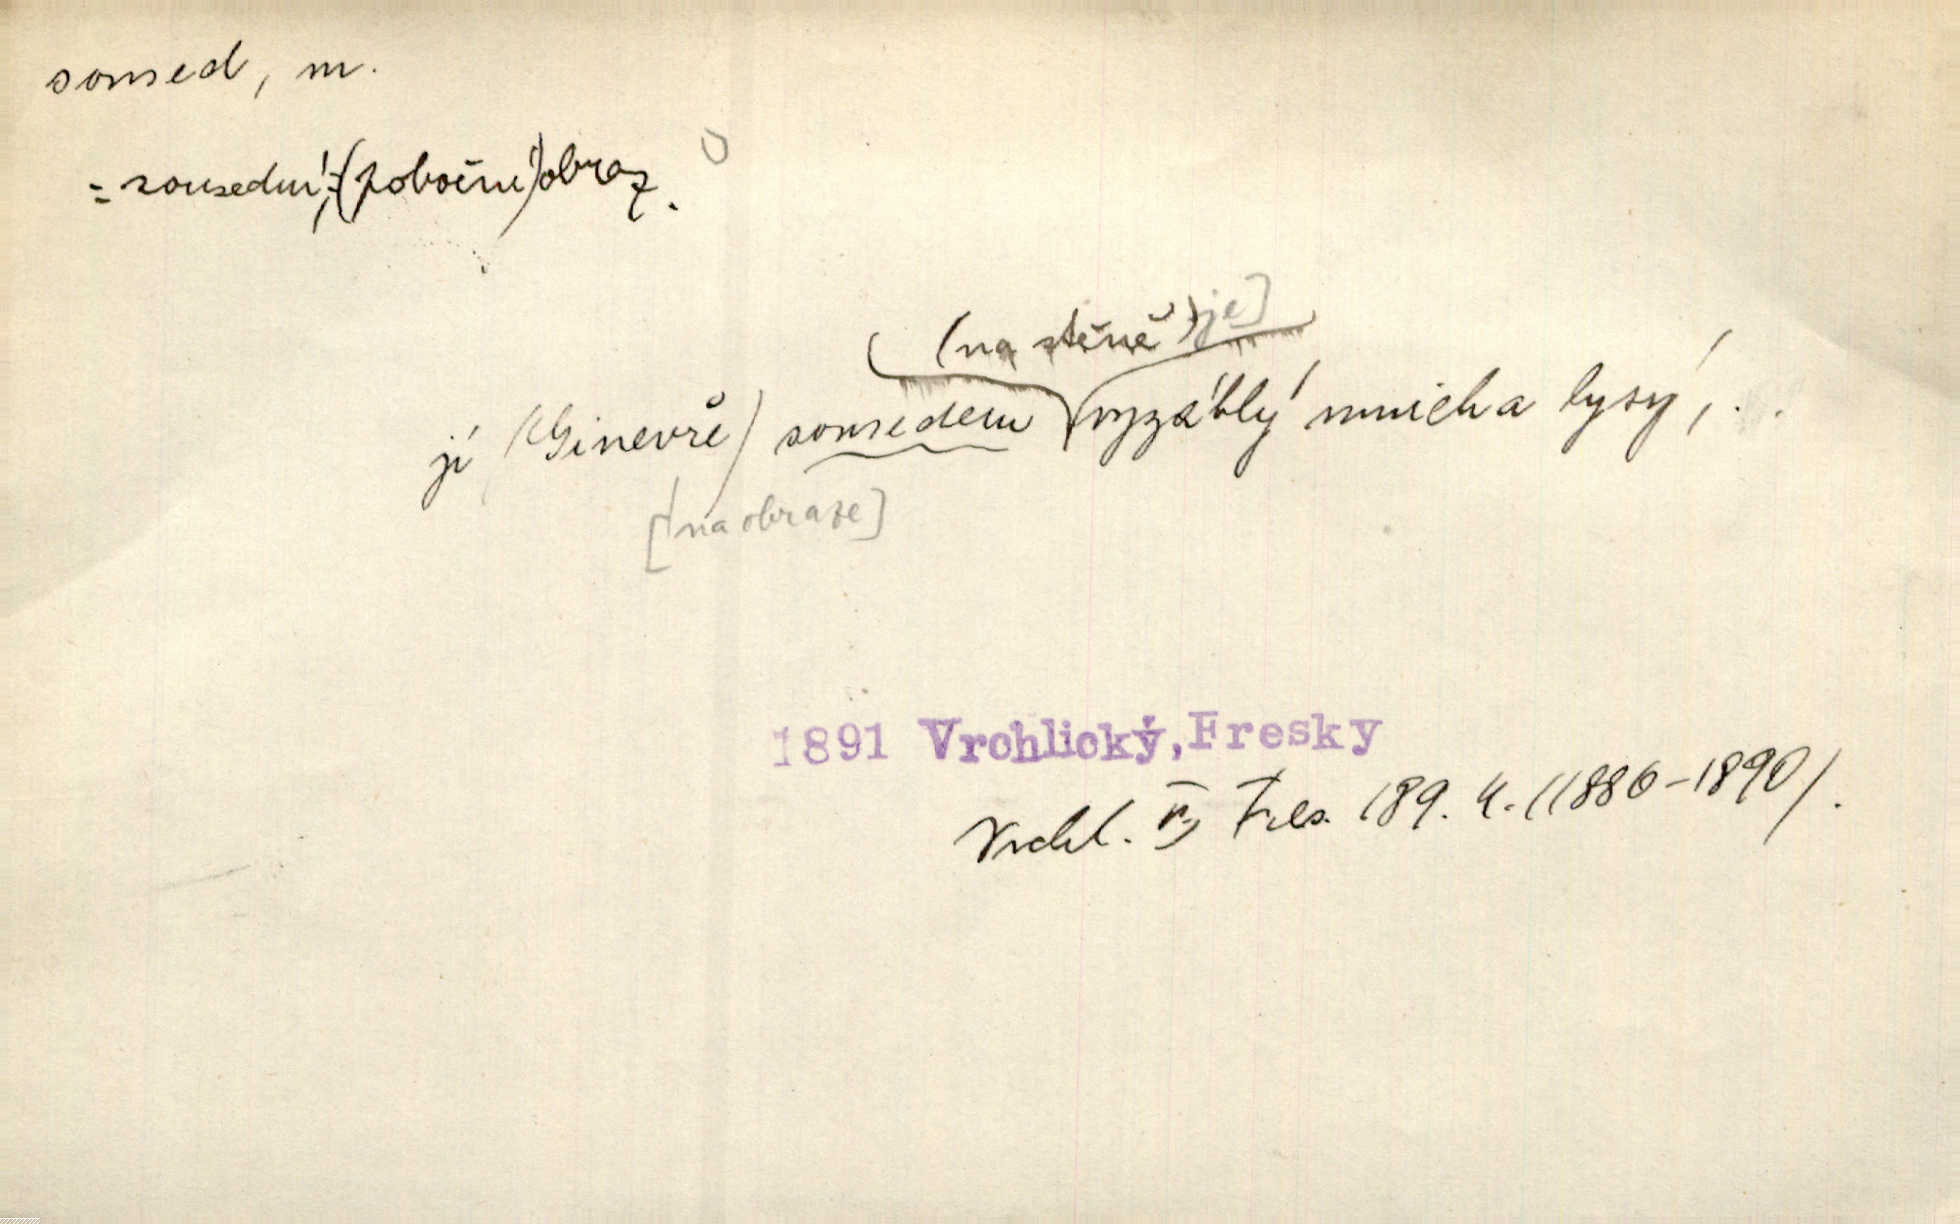 soused, m.
= sousední, (pobočný) obraz.
(na stěně) je]
jí (Ginevře) sousedem vyzáblý mnich a lysý, . .
[na obraze]
1891 Vrchlický, Fresky
Vrchl. Fres. 189. 4. (1886-1890).